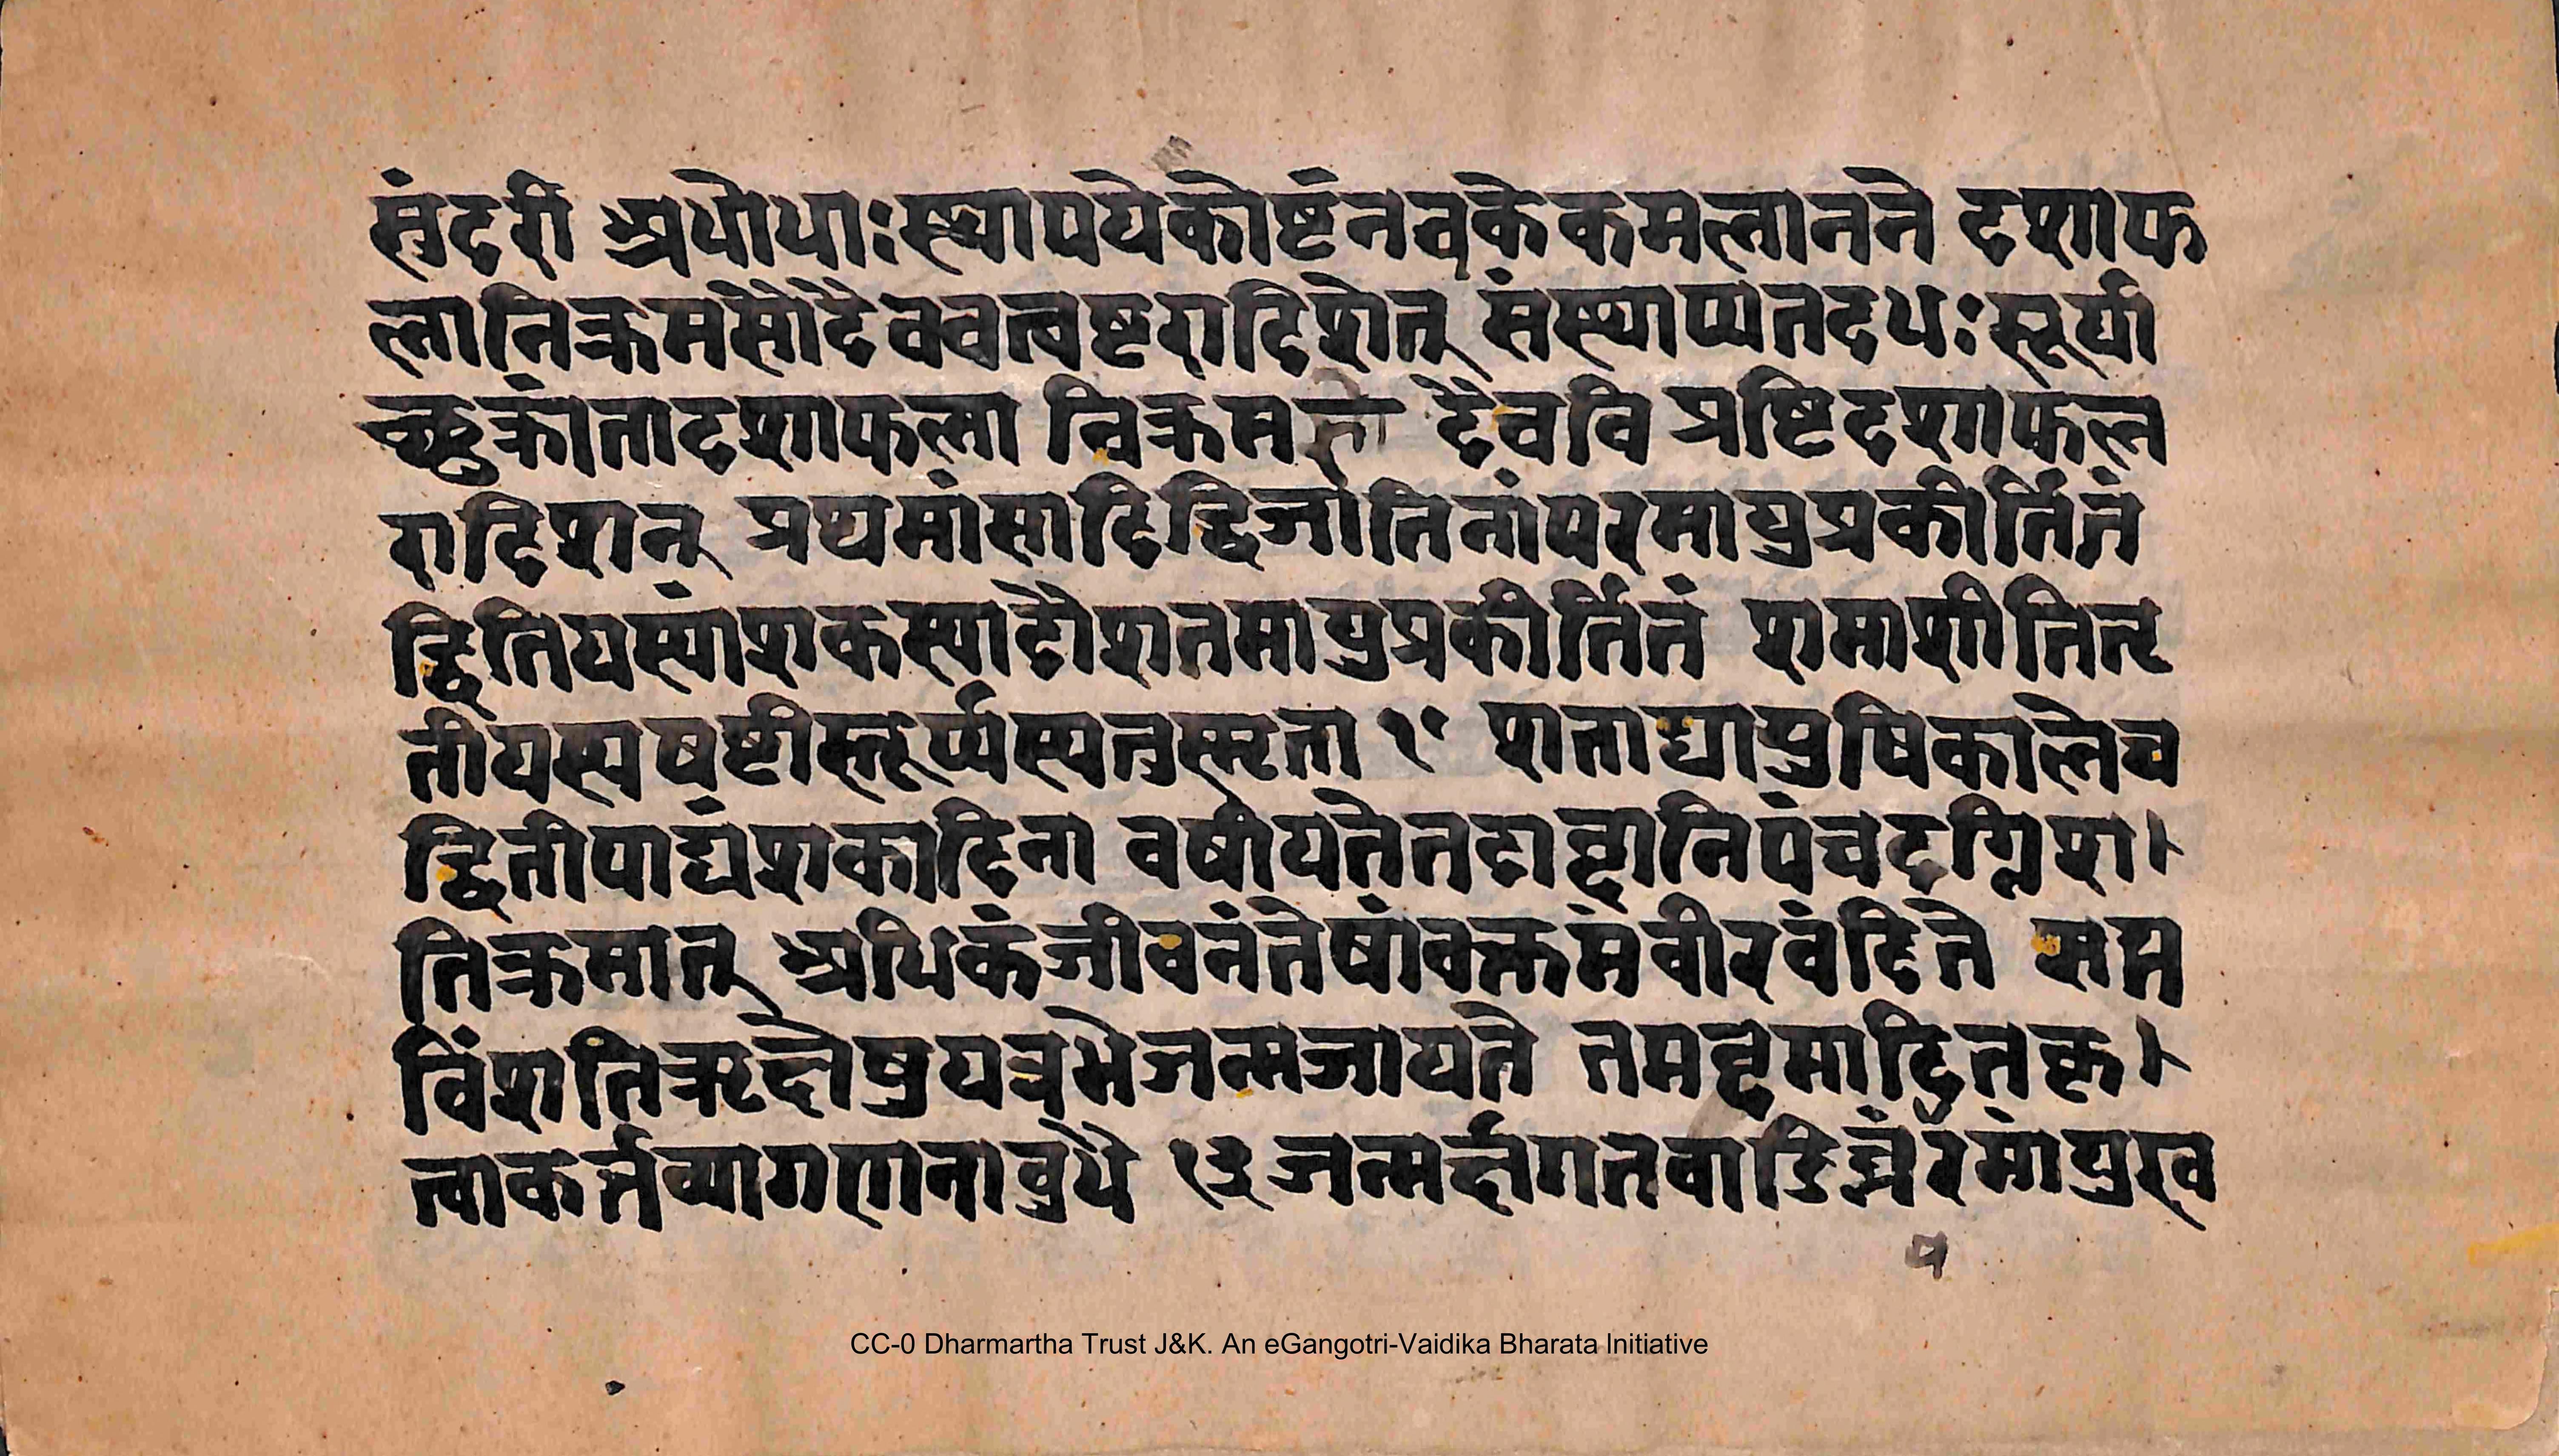 सुंदरी अधोधाःस्थापयेकोष्टंनवके कमलानने दशाफ
लानिक्रमसौदैवक्वत्वष्टरादिशेत् संस्थाप्यतदधःसूर्या
क्रांतादशाफला निक्रम दैवविप्रष्टिदशाफल
रादिशन् प्रथमांसादिद्विजातिनांपरमायुप्रकीर्तितं
द्वितियस्यांशकस्यादौशतमायुप्रकीर्तितं शमाशीतितृ
तीयस्यषष्टीस्तूर्य्यस्यतुस्मृता ११ शताद्यायुषिकालेच
द्वितीपाद्यंशकादिना वर्षीयतेतदाब्दानिपंचदग्निशा
तिक्रमात् अधिकंजीवनंतेषांवक्तमंवीरवंदिते सप्त
विंशतिऋक्षेषुयत्रभेजन्मजायते तमब्दमादितकृ
त्वाकर्तव्यागणनाबुधै १३ जन्मर्क्षगतवारमांयुरव
प
CC-0 Dharmartha Trust J&K. An eGangotri-Vaidika Bharata Initiative